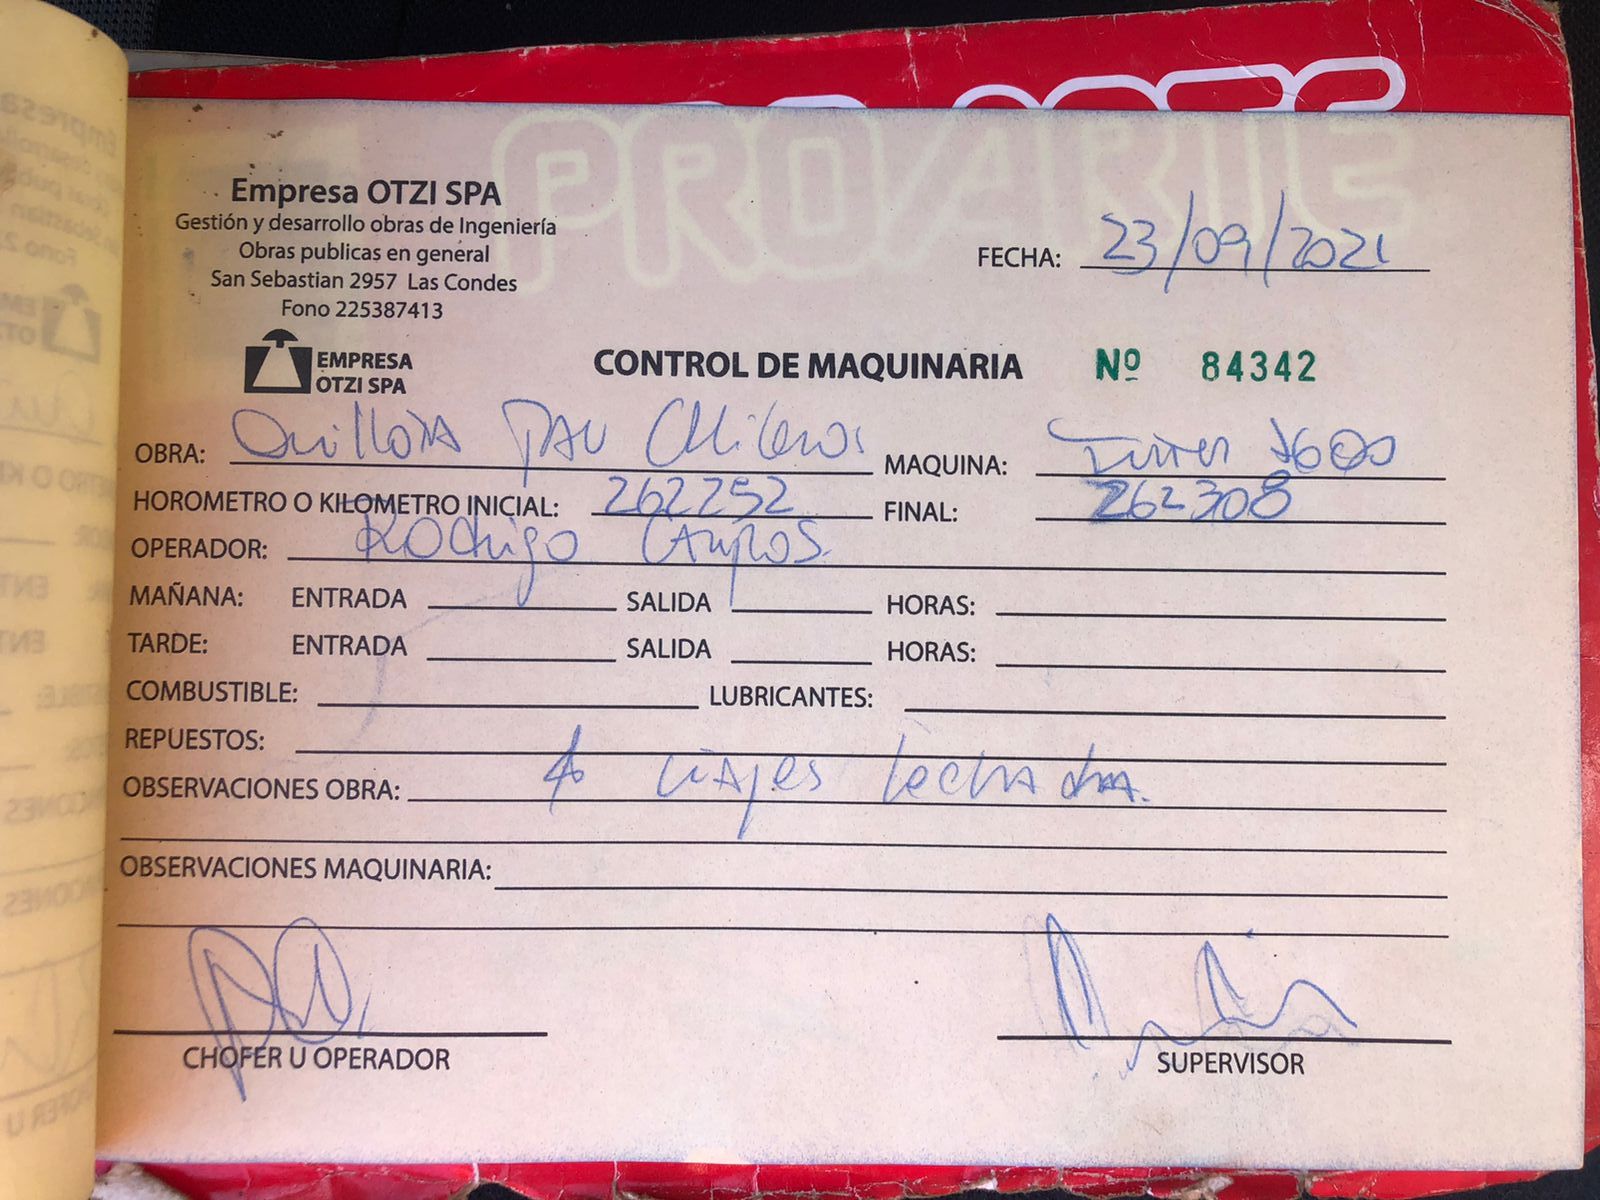 PROARTE
Empresa OTZI SPA
Gestión y desarrollo obras de Ingeniería
Obras publicas en general
San Sebastian 2957 Las Condes
Fono 225387413
FECHA: 23/09/2021
EMPRESA
OTZI SPA
CONTROL DE MAQUINARIA Nº 84342
OBRA: Quillota MAQUINA:
HOROMETRO O KILOMETRO INICIAL: 262252 FINAL: 262308
OPERADOR: Rodrigo Campos.
MAÑANA: ENTRADA SALIDA HORAS:
TARDE: ENTRADA SALIDA HORAS:
COMBUSTIBLE: LUBRICANTES:
REPUESTOS:
OBSERVACIONES OBRA: viajes lechada.
OBSERVACIONES MAQUINARIA:
CHOFER U OPERADOR SUPERVISOR